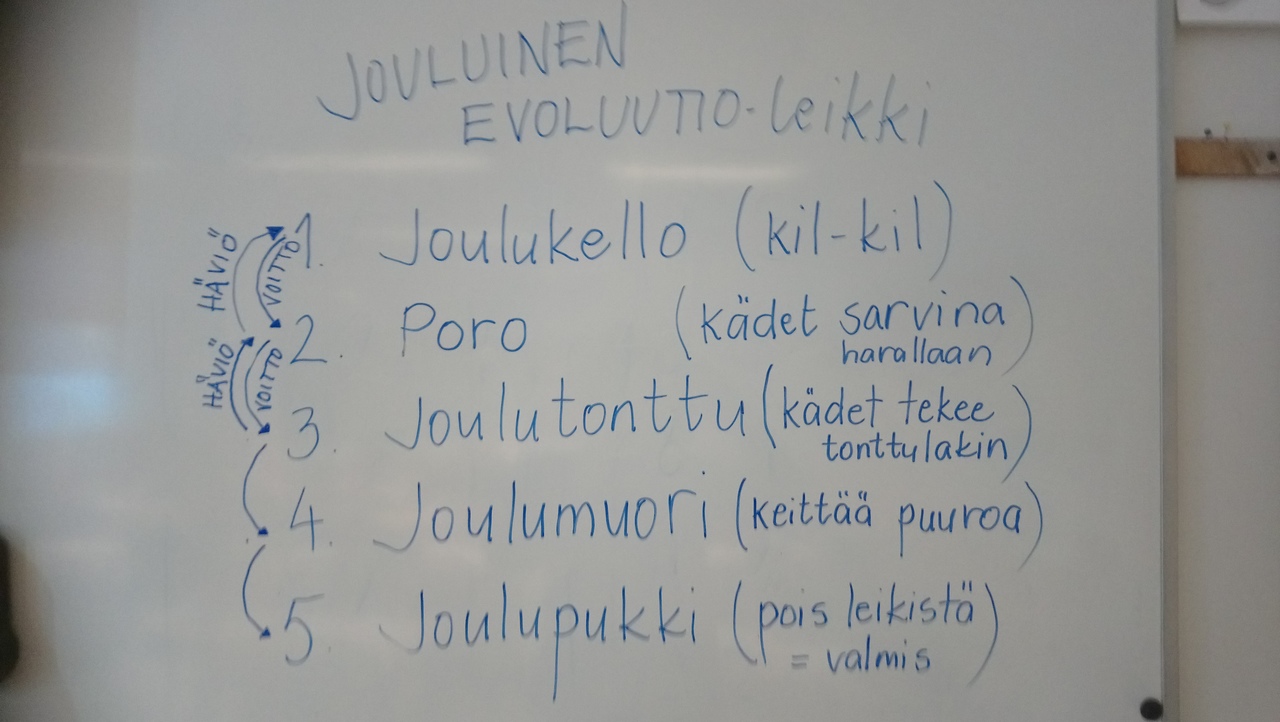 JOULUINEN
EVOLUUTIO-leikki
HÄVIÖ VOITTO 1. Joulukello (kil-kil)
2. Poro (kädet sarvina
harallaan)
HÄVIÖ VOITTO
3. Joulutonttu (kädet tekee
tonttulakin)
4. Joulumuori (keittää puuroa)
5. Joulupukki (pois leikistä
= valmis)